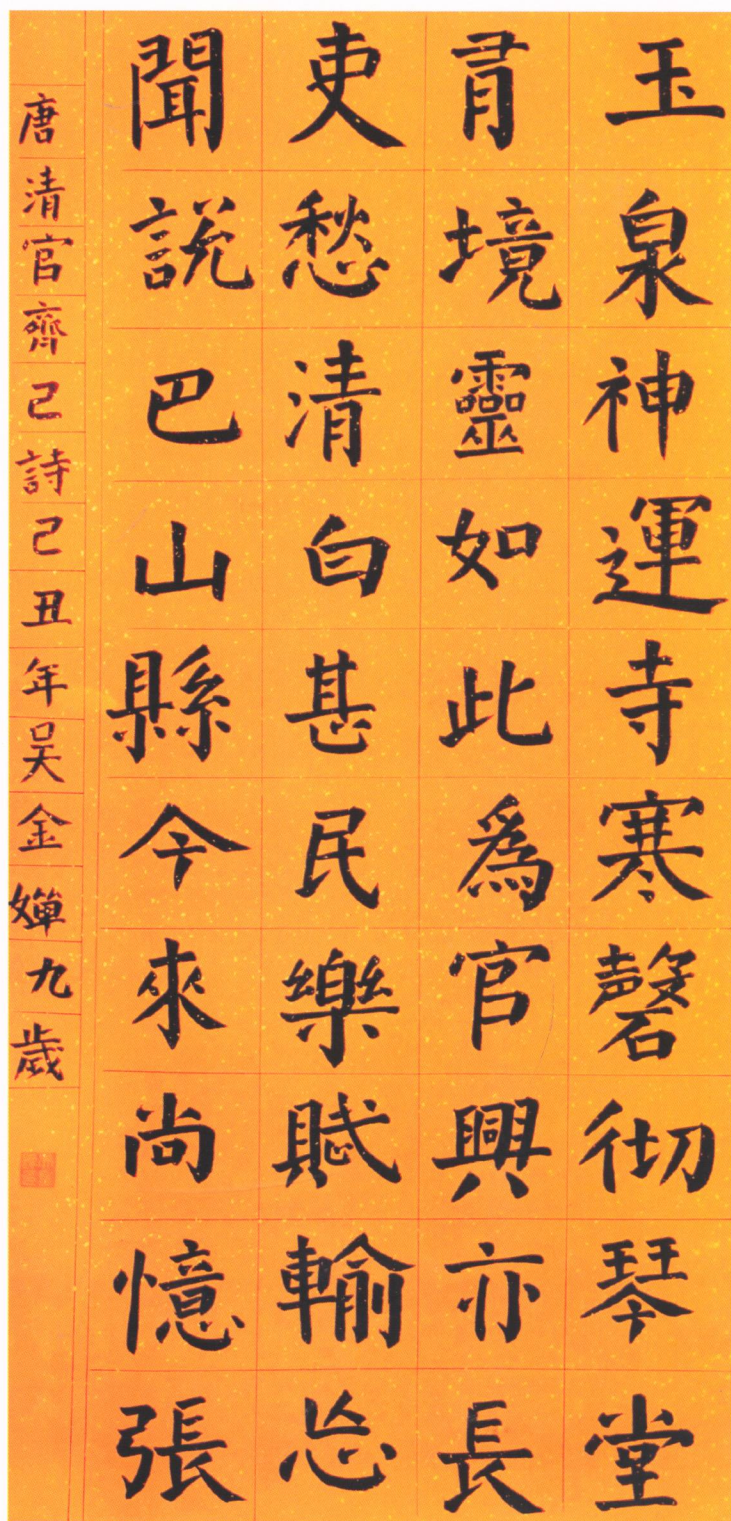 玉泉神運寺寒磬彻琴堂
有境靈如此爲官興亦長
吏愁清白甚民樂賦輸忘
聞説巴山縣今來尚憶張
唐清官齊己詩己丑年吴金嬋九歲